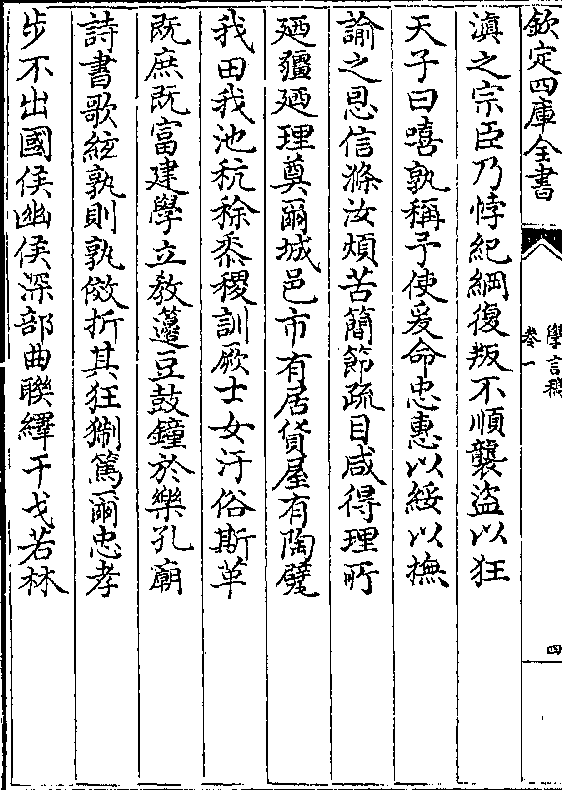 欽定四庫全書
學言稿
卷一
四
滇之宗臣乃悖紀綱復叛不順襲盜以狂
天子曰嘻孰稱予使爰命忠惠以綏以撫
諭之恩信滌汝煩苦簡節疏目咸得理所
廼彊廼理奠爾城邑市有居貸屋有陶甓
我田我池秔稌黍稷訓厥士女汙俗斯革
既庶既富建學立教籩豆鼓鐘於樂孔廟
詩書歌絃孰則孰傚折其狂猘篤爾忠孝
步不出國侯幽侯深部曲聯繹干戈若林